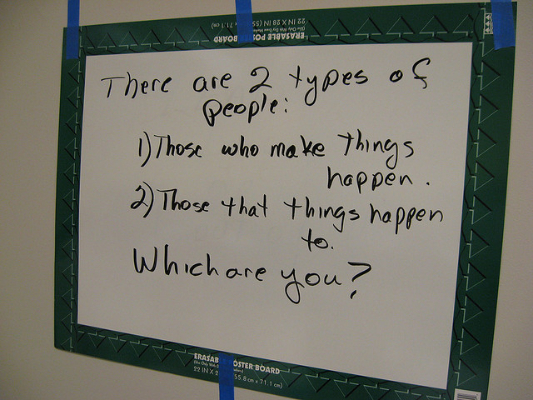 ERASABLE POSTER BOARD
22 IN X 28 IN (55.8 cm x 71.1 cm)
There are 2 types of
people:
1) Those who make things
happen.
2) Those that things happen
to.
Which are you?
ERASABLE POSTER BOARD
22 IN X 28 IN (55.8 cm x 71.1 cm)